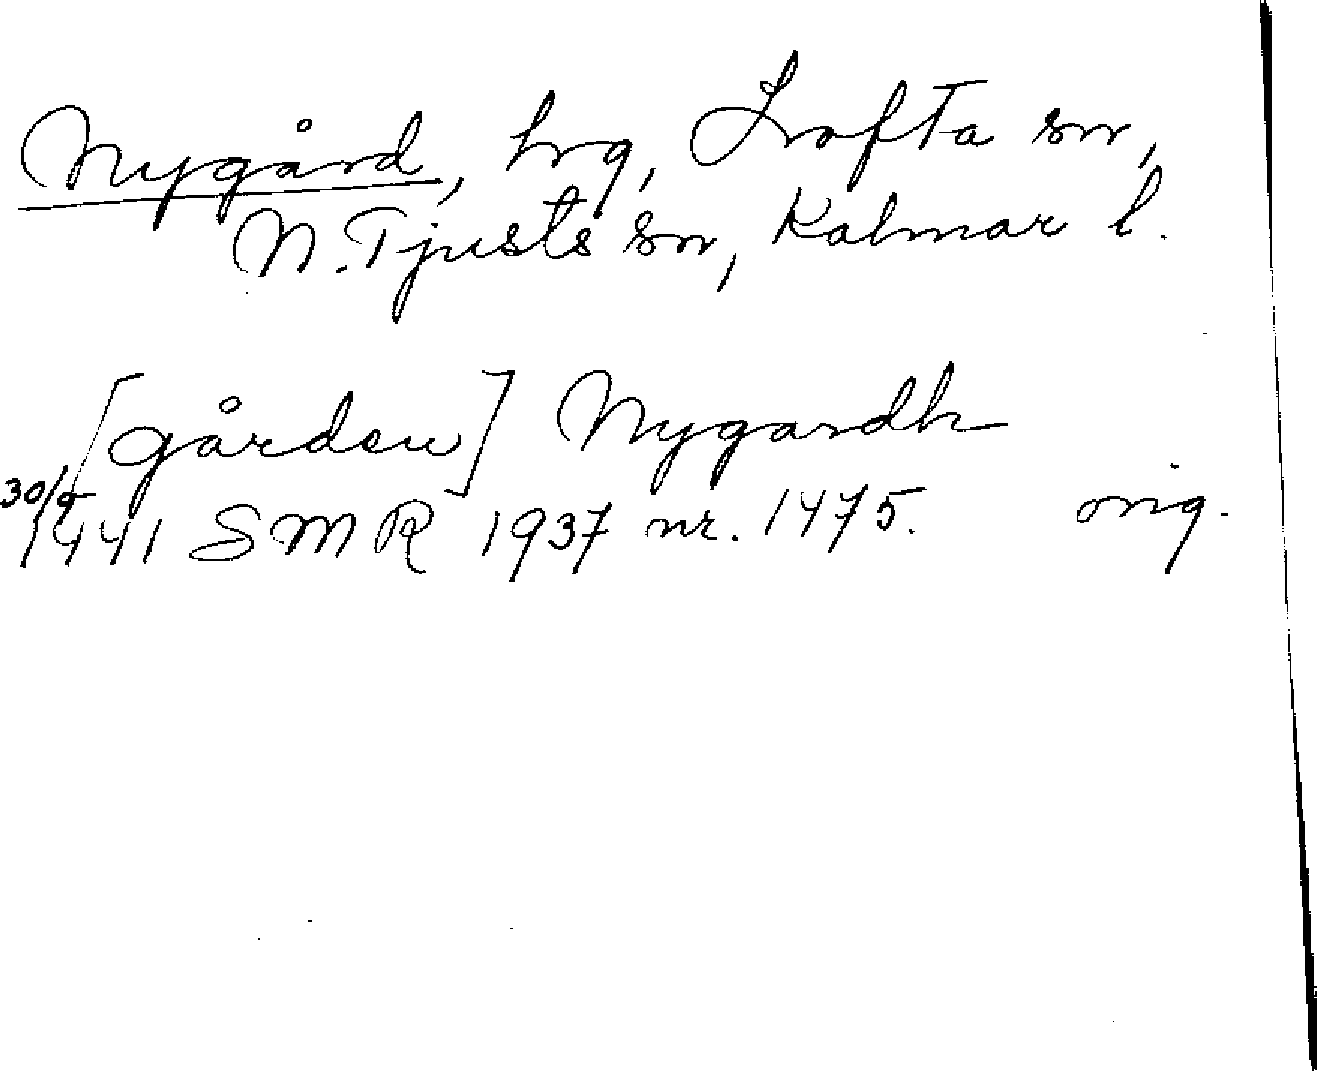 Nygård, hrg, Lofta sn,
N. Tjusts sn, Kalmar l.
[gården] Nygardh
30/5 1441 SMR 1937 nr. 1475. orig.